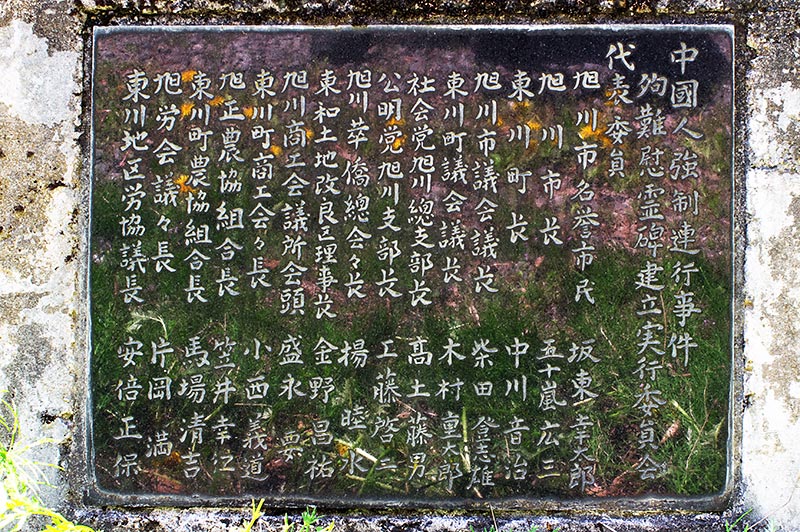 中國人強制連行事件
殉難慰霊碑建立実行委員会
代表委員
旭川市名誉市民 坂東幸太郎
旭川市長 五十嵐広三
東川町長 中川音治
旭川市議会議長 柴田登志雄
東川町議会議長 木村重太郎
社会党旭川總支部長 高土藤男
公明党旭川支部長 工藤啓三
旭川華僑總会々長 楊睦永
東和土地改良区理事長 金野昌祐
旭川商工会議所会頭 盛永要
東川町商工会々長 小西義道
旭正農協組合長 笠井幸江
東川町農協組合長 馬場清吉
旭労会議々長 片岡満
東川地区労協議長 安倍正保